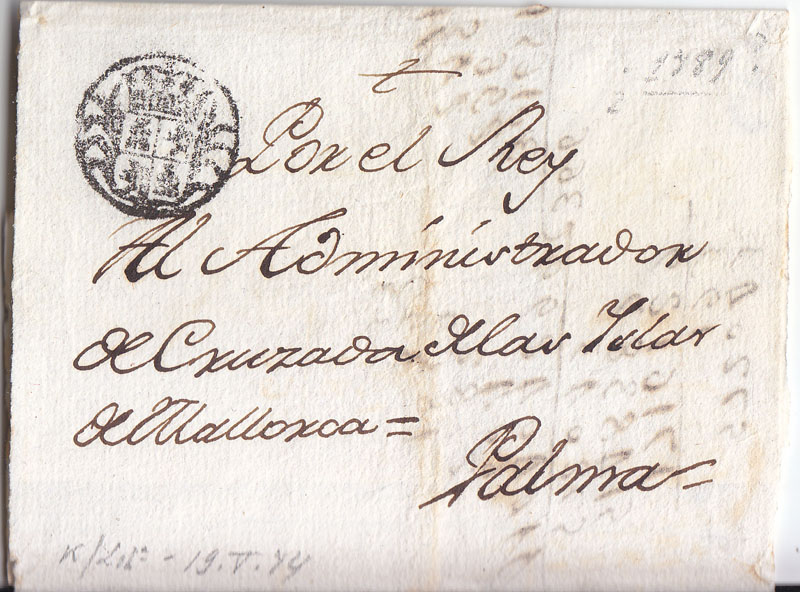 1789?
Por el Rey
Al Administrador
de Cruzada de las Yslas
de Mallorca =
Palma =
19.V.74